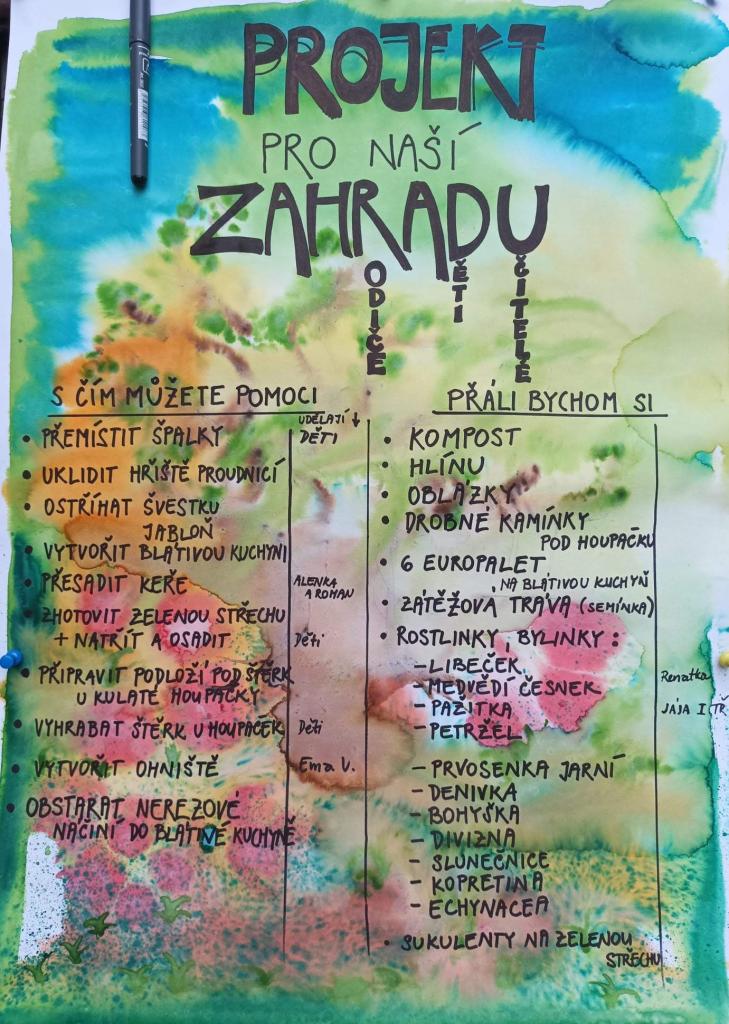 PROJEKT
PRO NAŠÍ
ZAHRADU
RODIČE
DĚTI
UČITELÉ
S ČÍM MŮŽETE POMOCI
UDĚLAJÍ ↓
• PŘEMÍSTIT ŠPALKY DĚTI
• UKLIDIT HŘIŠTĚ PROUDNICÍ
• OSTŘÍHAT ŠVESTKU
JABLOŇ
• VYTVOŘIT BLÁTIVOU KUCHYNI
• PŘESADIT KEŘE ALENKA
A ROMAN
• ZHOTOVIT ZELENOU STŘECHU
+ NATŘÍT A OSADIT Děti
• PŘIPRAVIT PODLOŽÍ POD ŠTĚRK
U KULATÉ HOUPAČKY
• VYHRABAT ŠTĚRK U HOUPAČEK Děti
• VYTVOŘIT OHNIŠTĚ Ema V.
• OBSTARAT NEREZOVÉ
NÁČINÍ DO BLÁTIVÉ KUCHYNĚ
PŘÁLI BYCHOM SI
• KOMPOST
• HLÍNU
• OBLÁZKY
• DROBNÉ KAMÍNKY
POD HOUPAČKU
• 6 EUROPALET
NA BLÁTIVOU KUCHYŇ
• ZÁTĚŽOVÁ TRÁVA (SEMÍNKA)
• ROSTLINKY, BYLINKY:
– LIBEČEK Renatka
– MEDVĚDÍ ČESNEK
– PAŽITKA JÁJA I TŘ
– PETRŽEL
– PRVOSENKA JARNÍ
– DENIVKA
– BOHYŠKA
– DIVIZNA
– SLUNEČNICE
– KOPRETINA
– ECHYNACEA
• SUKULENTY NA ZELENOU
STŘECHU